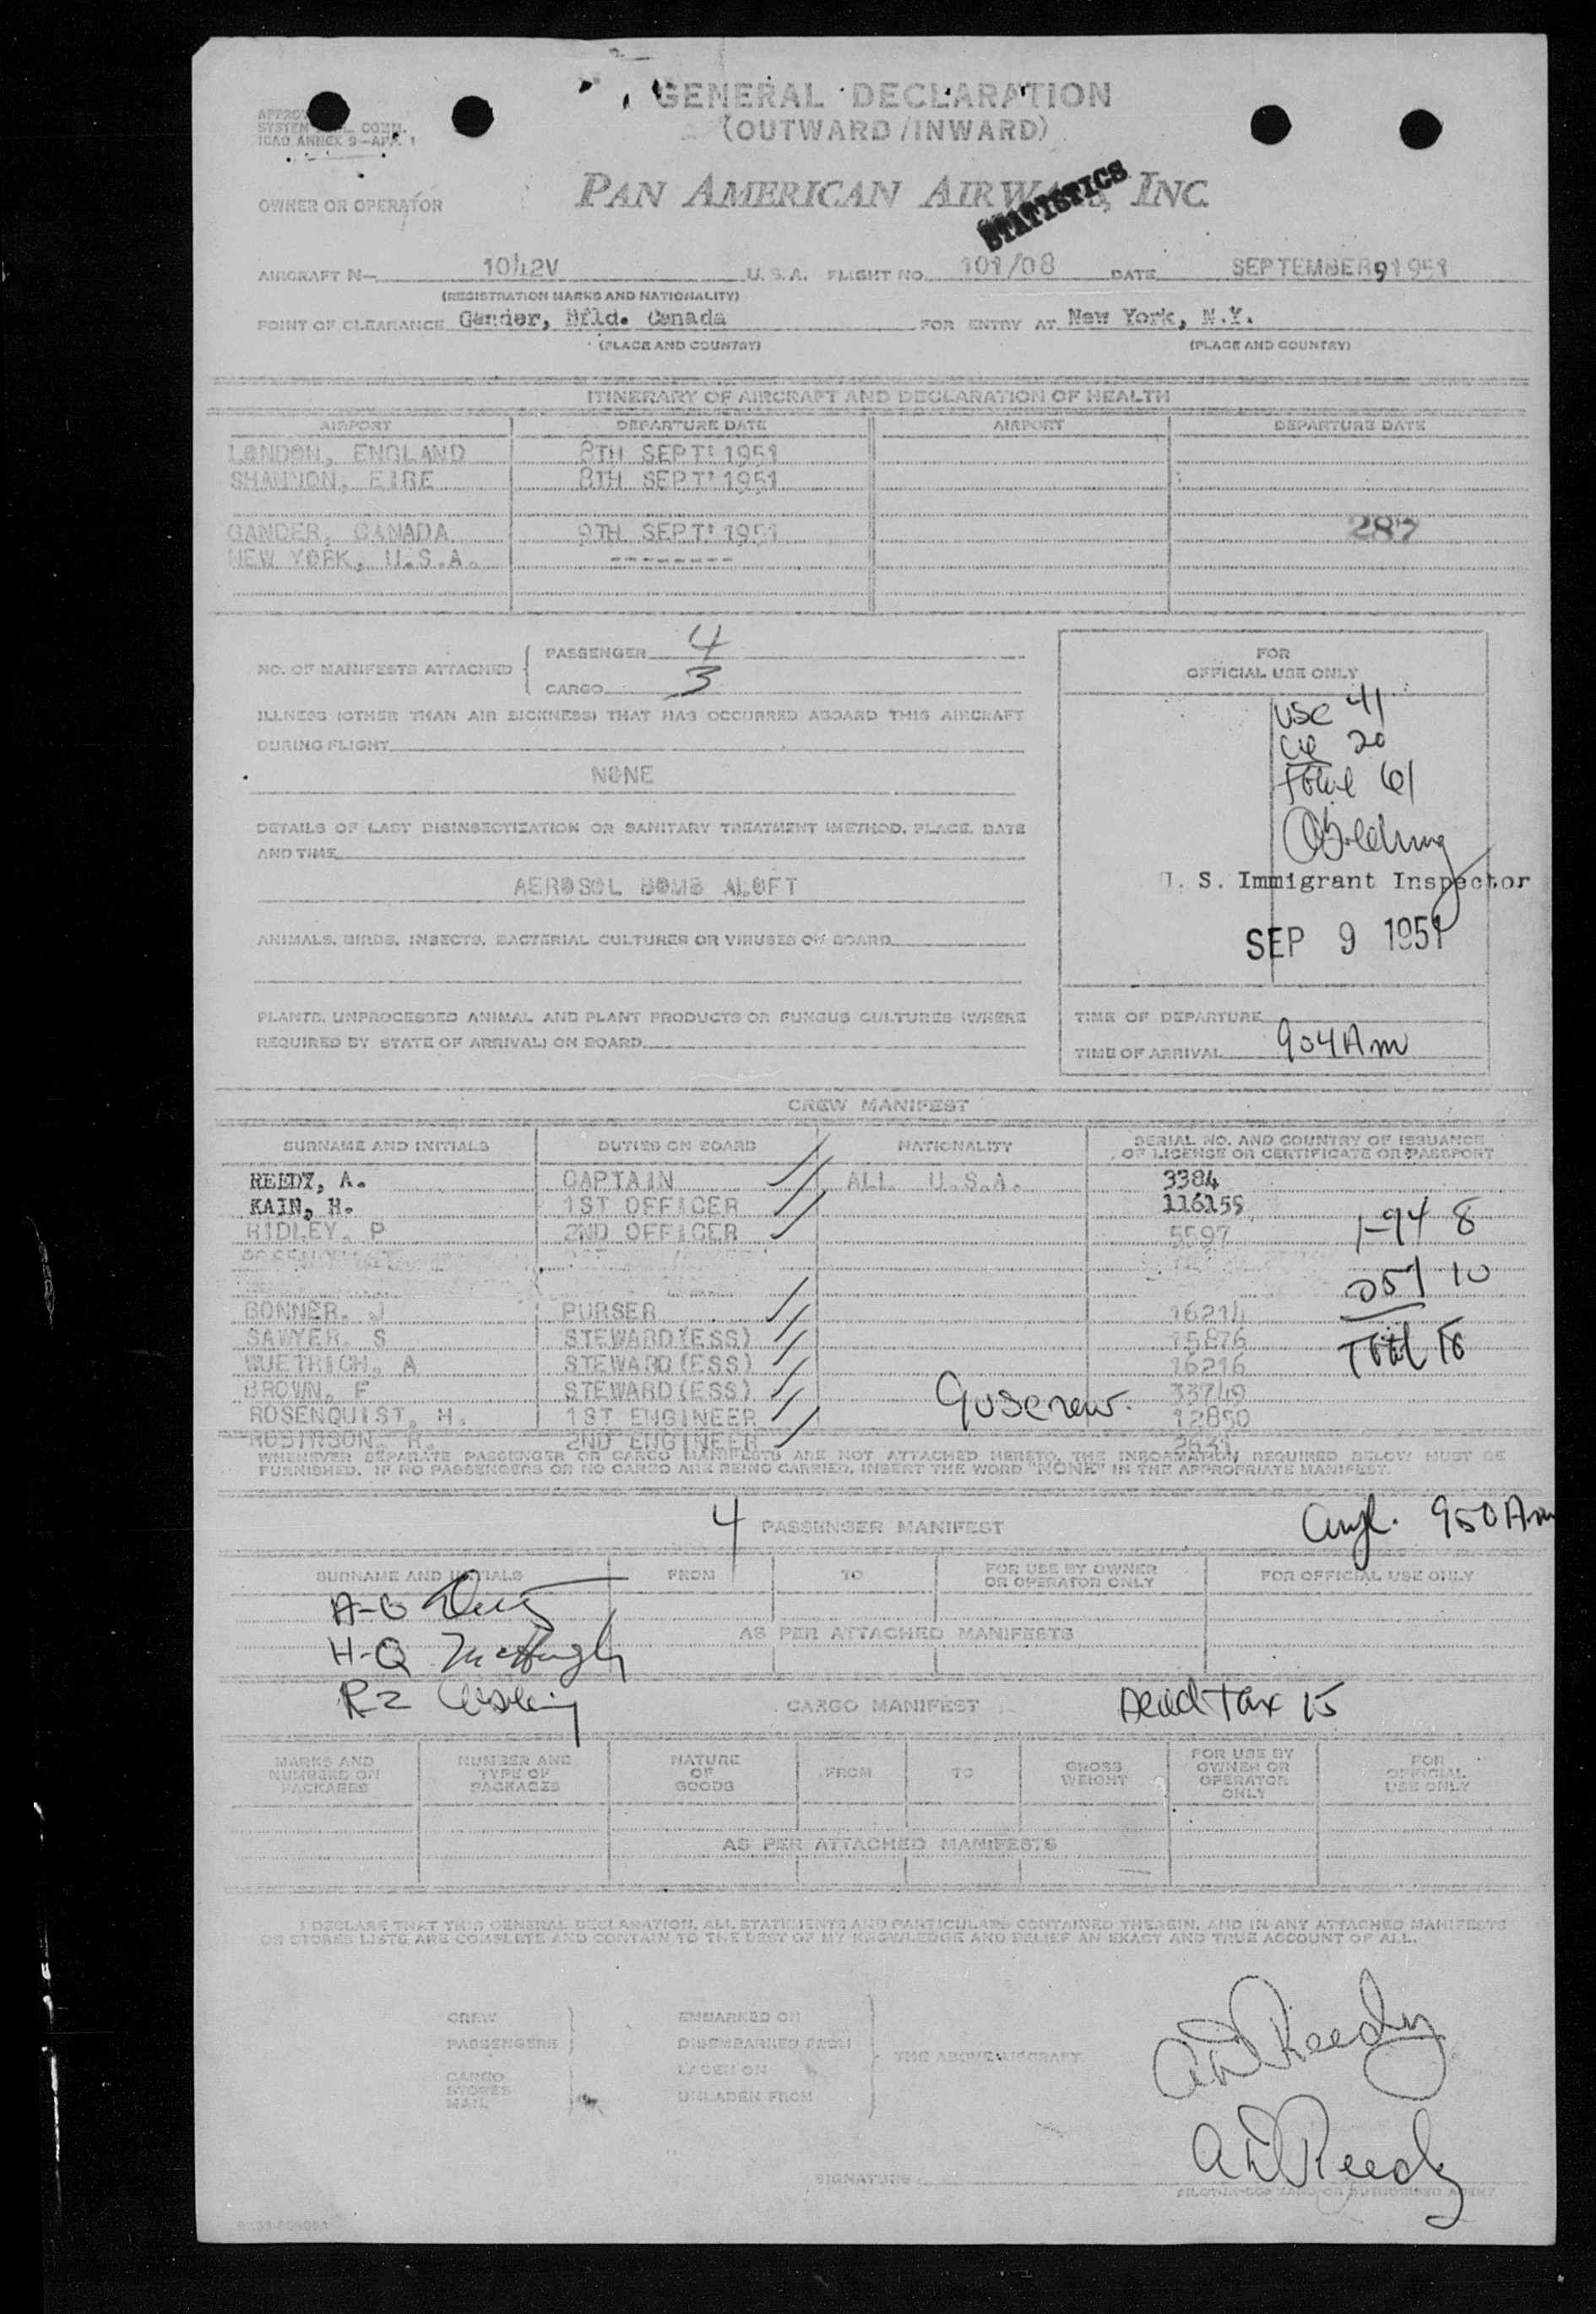 GENERAL DECLARATION
(OUTWARD/INWARD)
SYSTEM COMM.
ICAO ANNEX 9-APP. 1
OWNER OR OPERATOR
PAN AMERICAN AIRWAYS, INC.
STATISTICS
AIRCRAFT N- 1042V U. S. A. FLIGHT NO. 101/08 DATE SEPTEMBER 9 1951
(REGISTRATION MARKS AND NATIONALITY)
POINT OF CLEARANCE Gander, Nfld. Canada FOR ENTRY AT New York, N.Y.
(PLACE AND COUNTRY) (PLACE AND COUNTRY)
ITINERARY OF AIRCRAFT AND DECLARATION OF HEALTH
AIRPORT DEPARTURE DATE AIRPORT DEPARTURE DATE
LONDON, ENGLAND 8TH SEPT' 1951
SHANNON, EIRE 8TH SEPT' 1951
GANDER, CANADA 9TH SEPT' 1951 287
NEW YORK, U.S.A. --------
NO. OF MANIFESTS ATTACHED
PASSENGER 4
CARGO 3
ILLNESS (OTHER THAN AIR SICKNESS) THAT HAS OCCURRED ABOARD THIS AIRCRAFT
DURING FLIGHT
NONE
DETAILS OF LAST DISINSECTIZATION OR SANITARY TREATMENT (METHOD, PLACE, DATE
AND TIME
AEROSOL BOMB ALOFT
ANIMALS, BIRDS, INSECTS, BACTERIAL CULTURES OR VIRUSES ON BOARD
PLANTS, UNPROCESSED ANIMAL AND PLANT PRODUCTS OR FUNGUS CULTURES (WHERE
REQUIRED BY STATE OF ARRIVAL) ON BOARD
FOR
OFFICIAL USE ONLY
USC 41
20
Total 61
U. S. Immigrant Inspector
SEP 9 1951
TIME OF DEPARTURE
TIME OF ARRIVAL 904 Am
CREW MANIFEST
SURNAME AND INITIALS DUTIES ON BOARD NATIONALITY SERIAL NO. AND COUNTRY OF ISSUANCE
OF LICENSE OR CERTIFICATE OR PASSPORT
REEDY, A. CAPTAIN ALL U.S.A. 3384
KAIN, H. 1ST OFFICER 116155
RIDLEY, P 2ND OFFICER 5597
1-94 8
257 10
BONNER, J PURSER 16214
SAWYER, S STEWARD(ESS) 15876
Total 18
WUETRICH, A STEWARD(ESS) 16216
BROWN, F STEWARD(ESS) 33749
9 USC crew.
ROSENQUIST, H. 1ST ENGINEER 12850
ROBINSON, R. 2ND ENGINEER 2631
WHENEVER SEPARATE PASSENGER OR CARGO MANIFESTS ARE NOT ATTACHED HERETO, THE INFORMATION REQUIRED BELOW MUST BE
FURNISHED. IF NO PASSENGERS OR NO CARGO ARE BEING CARRIED, INSERT THE WORD "NONE" IN THE APPROPRIATE MANIFEST.
4 PASSENGER MANIFEST 950 Am
SURNAME AND INITIALS FROM TO FOR USE BY OWNER
OR OPERATOR ONLY FOR OFFICIAL USE ONLY
A-G
AS PER ATTACHED MANIFESTS
H-Q McHugh
R-Z
CARGO MANIFEST Head Tax 15
MARKS AND
NUMBERS ON
PACKAGES
NUMBER AND
TYPE OF
PACKAGES
NATURE
OF
GOODS
FROM
TO
GROSS
WEIGHT
FOR USE BY
OWNER OR
OPERATOR
ONLY
FOR
OFFICIAL
USE ONLY
AS PER ATTACHED MANIFESTS
I DECLARE THAT THIS GENERAL DECLARATION, ALL STATEMENTS AND PARTICULARS CONTAINED THEREIN, AND IN ANY ATTACHED MANIFESTS
OR STORES LISTS ARE COMPLETE AND CONTAIN TO THE BEST OF MY KNOWLEDGE AND BELIEF AN EXACT AND TRUE ACCOUNT OF ALL.
CREW
PASSENGERS
CARGO
STORES
MAIL
EMBARKED ON
DISEMBARKED FROM
LADEN ON
UNLADEN FROM
THE ABOVE AIRCRAFT.
A D Reedy
A D Reedy
SIGNATURE
PILOT-IN-COMMAND OR AUTHORISED AGENT